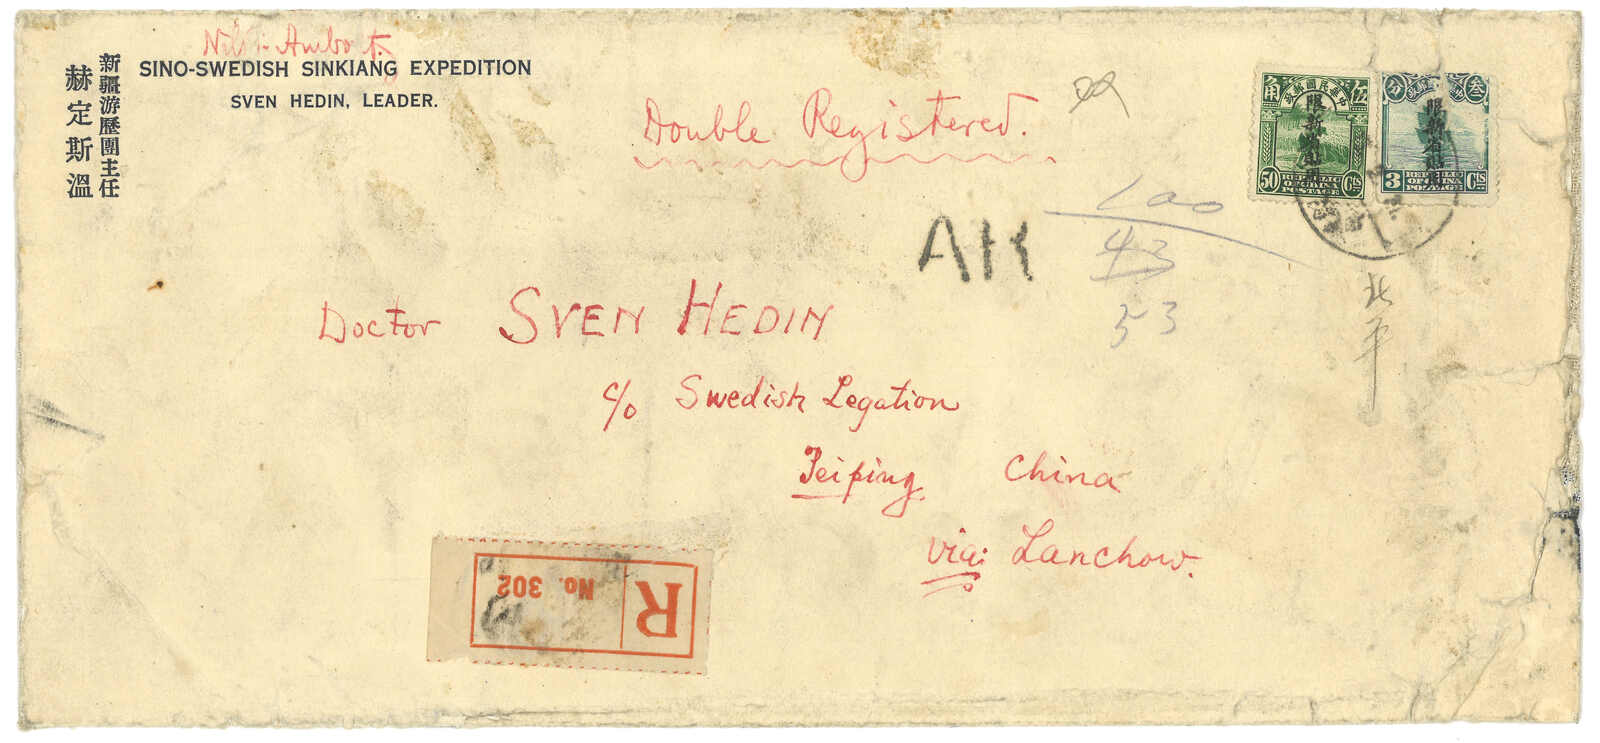 Nils Ambolt.
SINO-SWEDISH SINKIANG EXPEDITION
SVEN HEDIN, LEADER.
新疆游歷團主任
赫定斯溫
Double Registered.
角 伍
中華民國郵政
限新省貼用
50 Cts
REPUBLIC
OF CHINA
POSTAGE
分 叁
中華民國郵政
限新省貼用
3 Cts
REPUBLIC
OF CHINA
POSTAGE
AR
100
43
53
北平
Doctor SVEN HEDIN
c/o Swedish Legation
Peiping. China
via: Lanchow.
R
No. 302